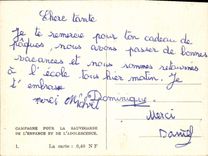 Chère tante
Je te remercie pour ton cadeau de
Pâques, nous avons passer de bonnes
vacances et nous sommes retournés
à l'école tous hier matin. Je
t'embrasse
Noël Michel Dominique
Merci
Daniel
CAMPAGNE POUR LA SAUVEGARDE
DE L'ENFANCE ET DE L'ADOLESCENCE.
1. La carte : 0,40 NF